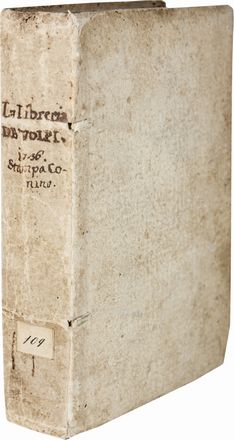 La Libreria
DE VOLPI.
1756
Stampa Co-
mino.
109